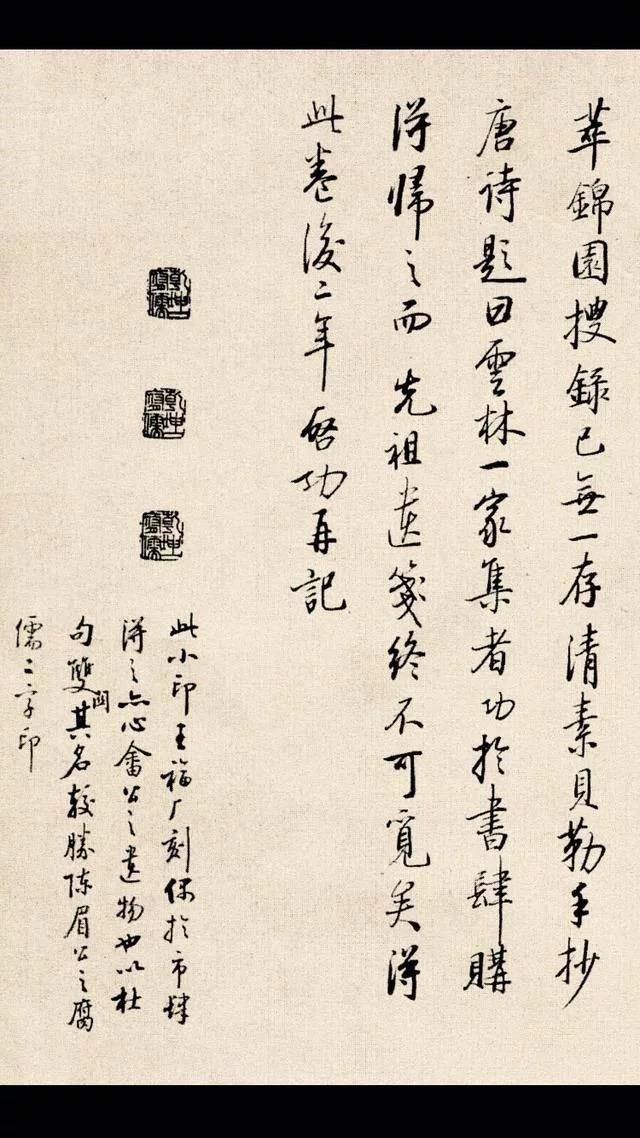 萃錦園搜錄已無一存清素貝勒手抄
唐诗題曰雲林一家集者功於書肆購
得帰之而先祖遺箋終不可覓矣得
此卷後二年啓功再記
此小印王福厂刻偶於市肆
得之亦心畬公之遺物也以杜
句雙関其名較勝陳眉公之腐
儒二字印